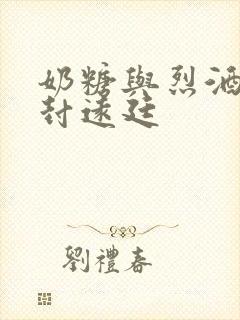 奶糖與烈酒
封遠廷
劉禮春